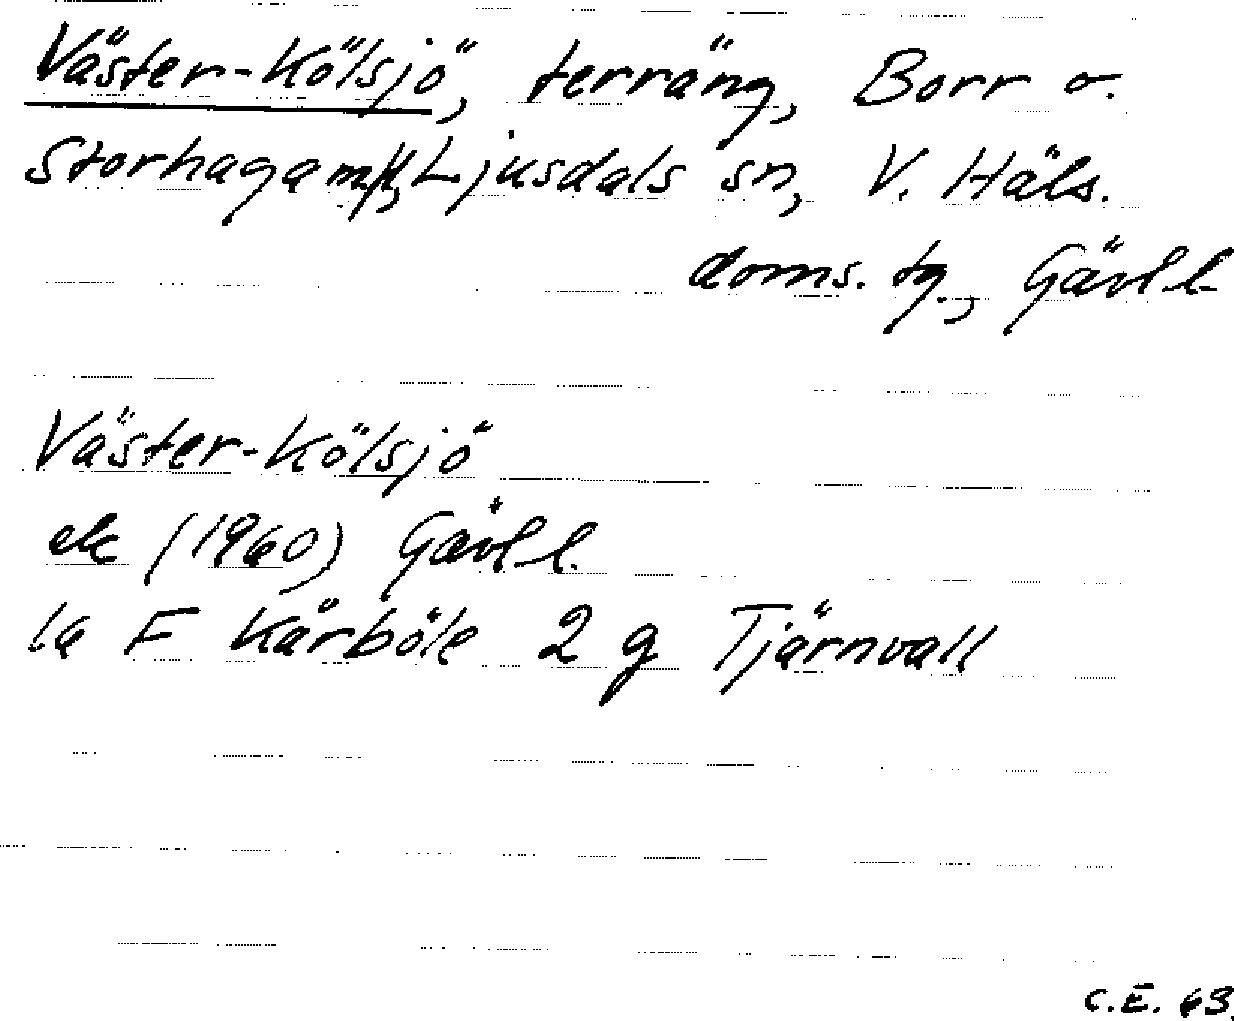 Väster-Kölsjö, terräng, Borr o.
Storhaga Ljusdals sn, V. Häls.
doms. tg., Gävl l.
Väster-Kölsjö
ek (1960) Gävl l.
la F Kårböle 2 g Tjärnvall
C.E. 63.